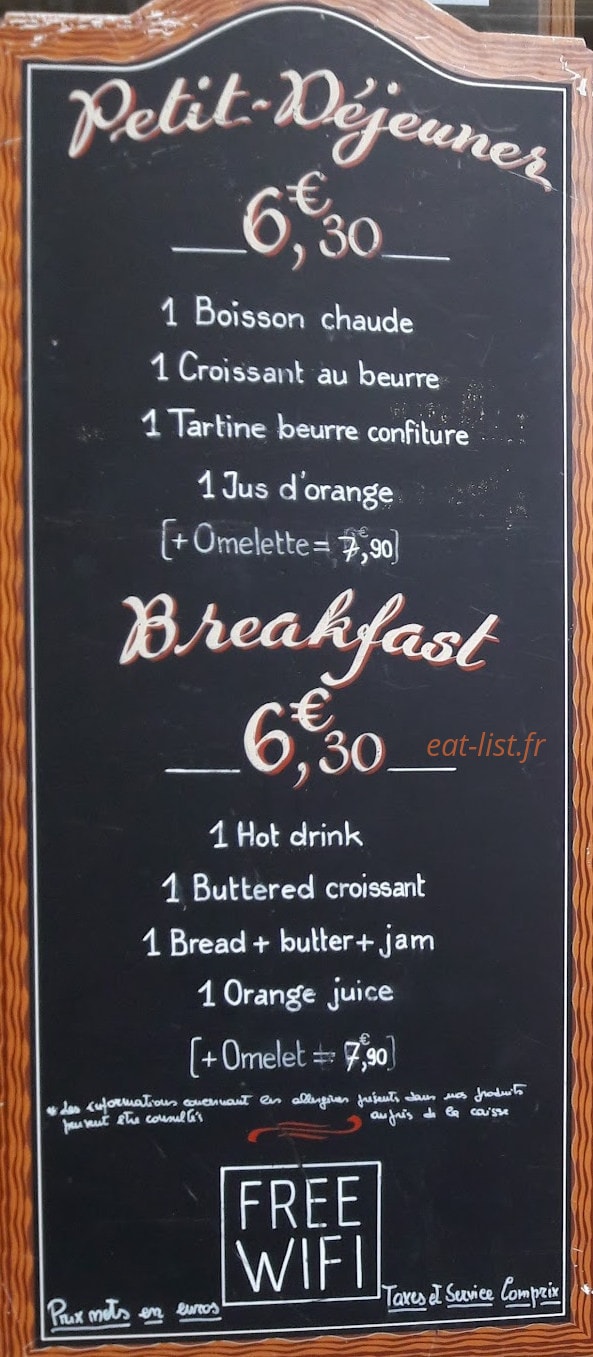 Petit-Déjeuner
6,€30
1 Boisson chaude
1 Croissant au beurre
1 Tartine beurre confiture
1 Jus d'orange
[+ Omelette = 7,€90]
Breakfast
6,€30
eat-list.fr
1 Hot drink
1 Buttered croissant
1 Bread + butter + jam
1 Orange juice
[+ Omelet = 7,€90]
* Les informations concernant les allergènes présents dans nos produits
peuvent être consultés auprès de la caisse
FREE
WIFI
Prix nets en euros
Taxes et Service Comprix